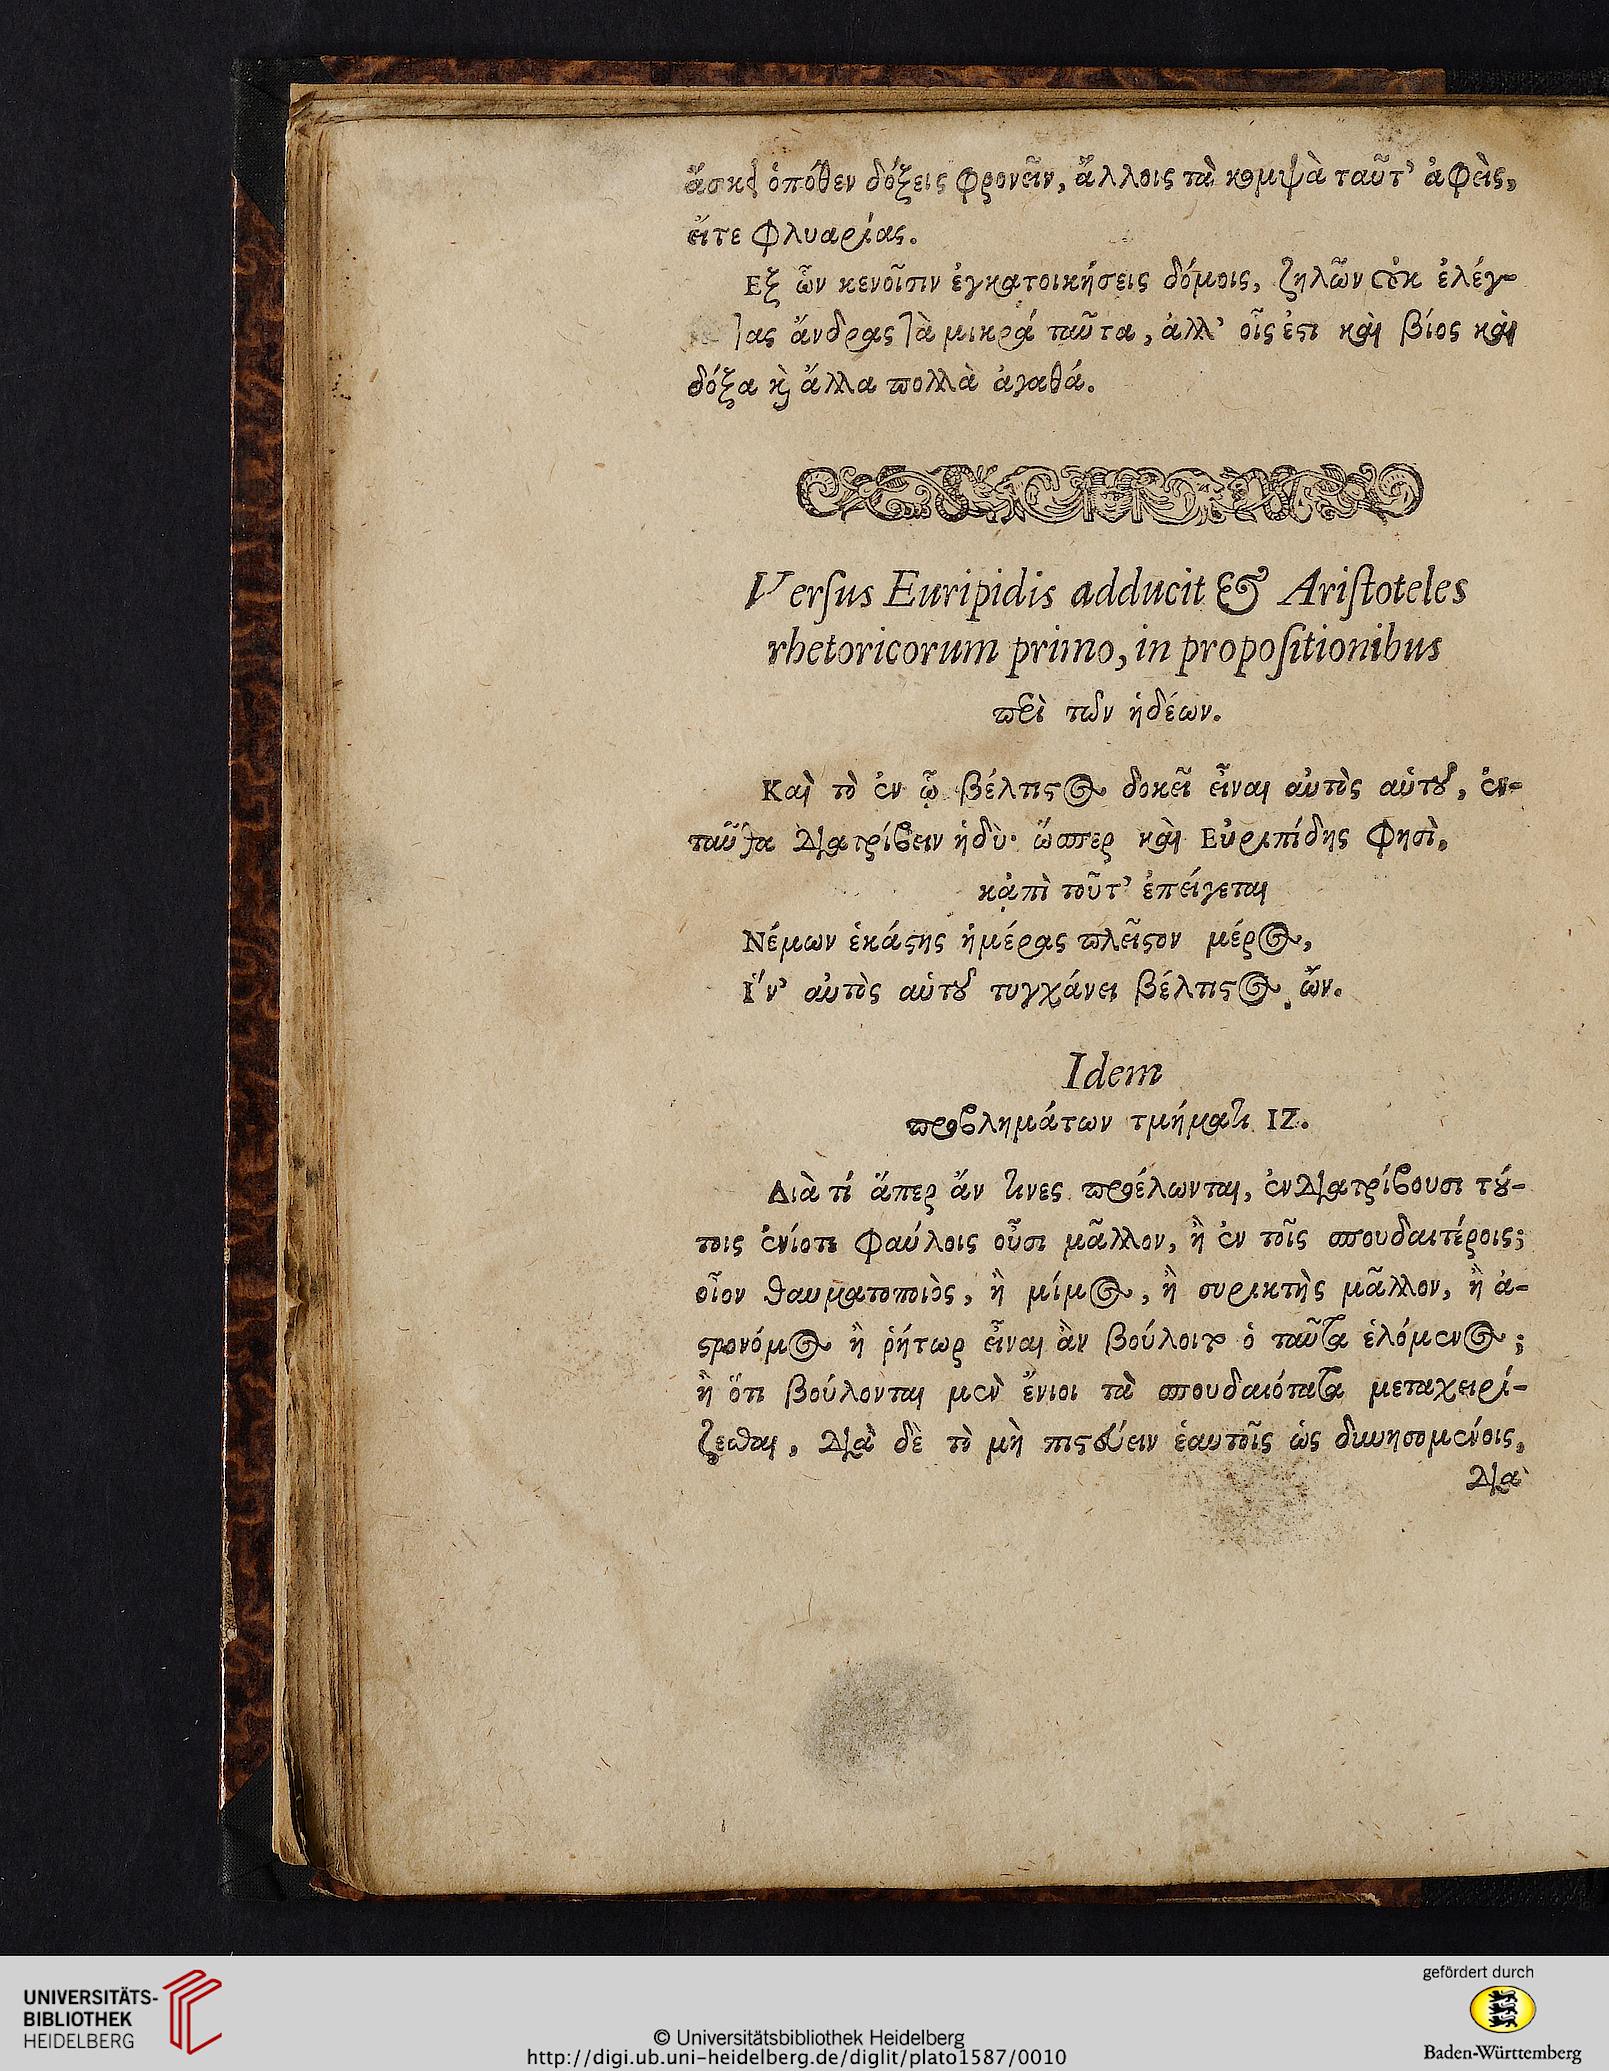 ἄσκει ὁπόθεν δόξεις φρονεῖν, ἄλλοις τὰ κομψὰ ταῦτ’ ἀφεὶς,
εἴτε φλυαρίας.
Εξ ὧν κενοῖσιν ἐγκατοικήσεις δόμοις, ζηλῶν οὐκ ἐλέγ-
τας ἄνδρας τὰ μικρά ταῦτα, ἀλλ’ οἷς ἐστι καὶ βίος καὶ
δόξα καὶ ἄλλα πολλὰ ἀγαθά.
Versus Euripidis adducit & Aristoteles
rhetoricorum primo, in propositionibus
περὶ τῶν ἡδέων.
Καὶ τὸ ἐν ᾧ βέλτιστος δοκεῖ εἶναι αὐτὸς αὑτοῦ, ἐν-
ταῦθα διατρίβειν ἡδὺ· ὥσπερ καὶ Εὐριπίδης φησὶ,
κᾀπὶ τοῦτ’ ἐπείγεται
Νέμων ἑκάστης ἡμέρας πλεῖστον μέρος,
Ἵν’ αὐτὸς αὑτοῦ τυγχάνει βέλτιστος ὤν.
Idem
προβλημάτων τμήματι ΙΖ.
Διὰ τί ἅπερ ἄν τινες προέλωνται, ἐνδιατρίβουσι τού-
τοις ἐνίοτε φαύλοις οὖσι μᾶλλον, ἢ ἐν τοῖς σπουδαιτέροις;
οἷον θαυματοποιὸς, ἢ μίμος, ἢ συρικτὴς μᾶλλον, ἢ ἀ-
στρονόμος ἢ ῥήτωρ εἶναι ἂν βούλοιτο ὁ ταῦτα ἑλόμενος;
ἢ ὅτι βούλονται μὲν ἔνιοι τὰ σπουδαιότατα μεταχειρί-
ζεσθαι, διὰ δὲ τὸ μὴ πιστεύειν ἑαυτοῖς ὡς δυνησομένοις,
διὰ
UNIVERSITÄTS-
BIBLIOTHEK
HEIDELBERG
© Universitätsbibliothek Heidelberg
http://digi.ub.uni-heidelberg.de/diglit/plato1587/0010
gefördert durch
Baden-Württemberg